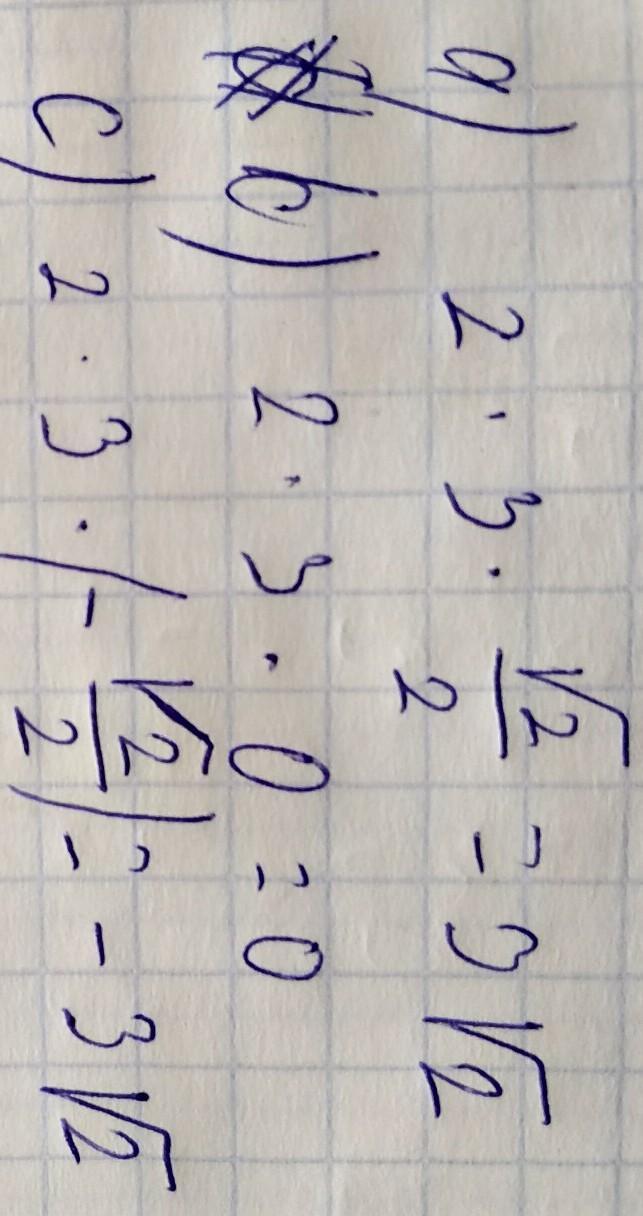 a) 2 · 3 · √2/2 = 3√2
b) 2 · 3 · 0 = 0
c) 2 · 3 · (-√2/2) = -3√2